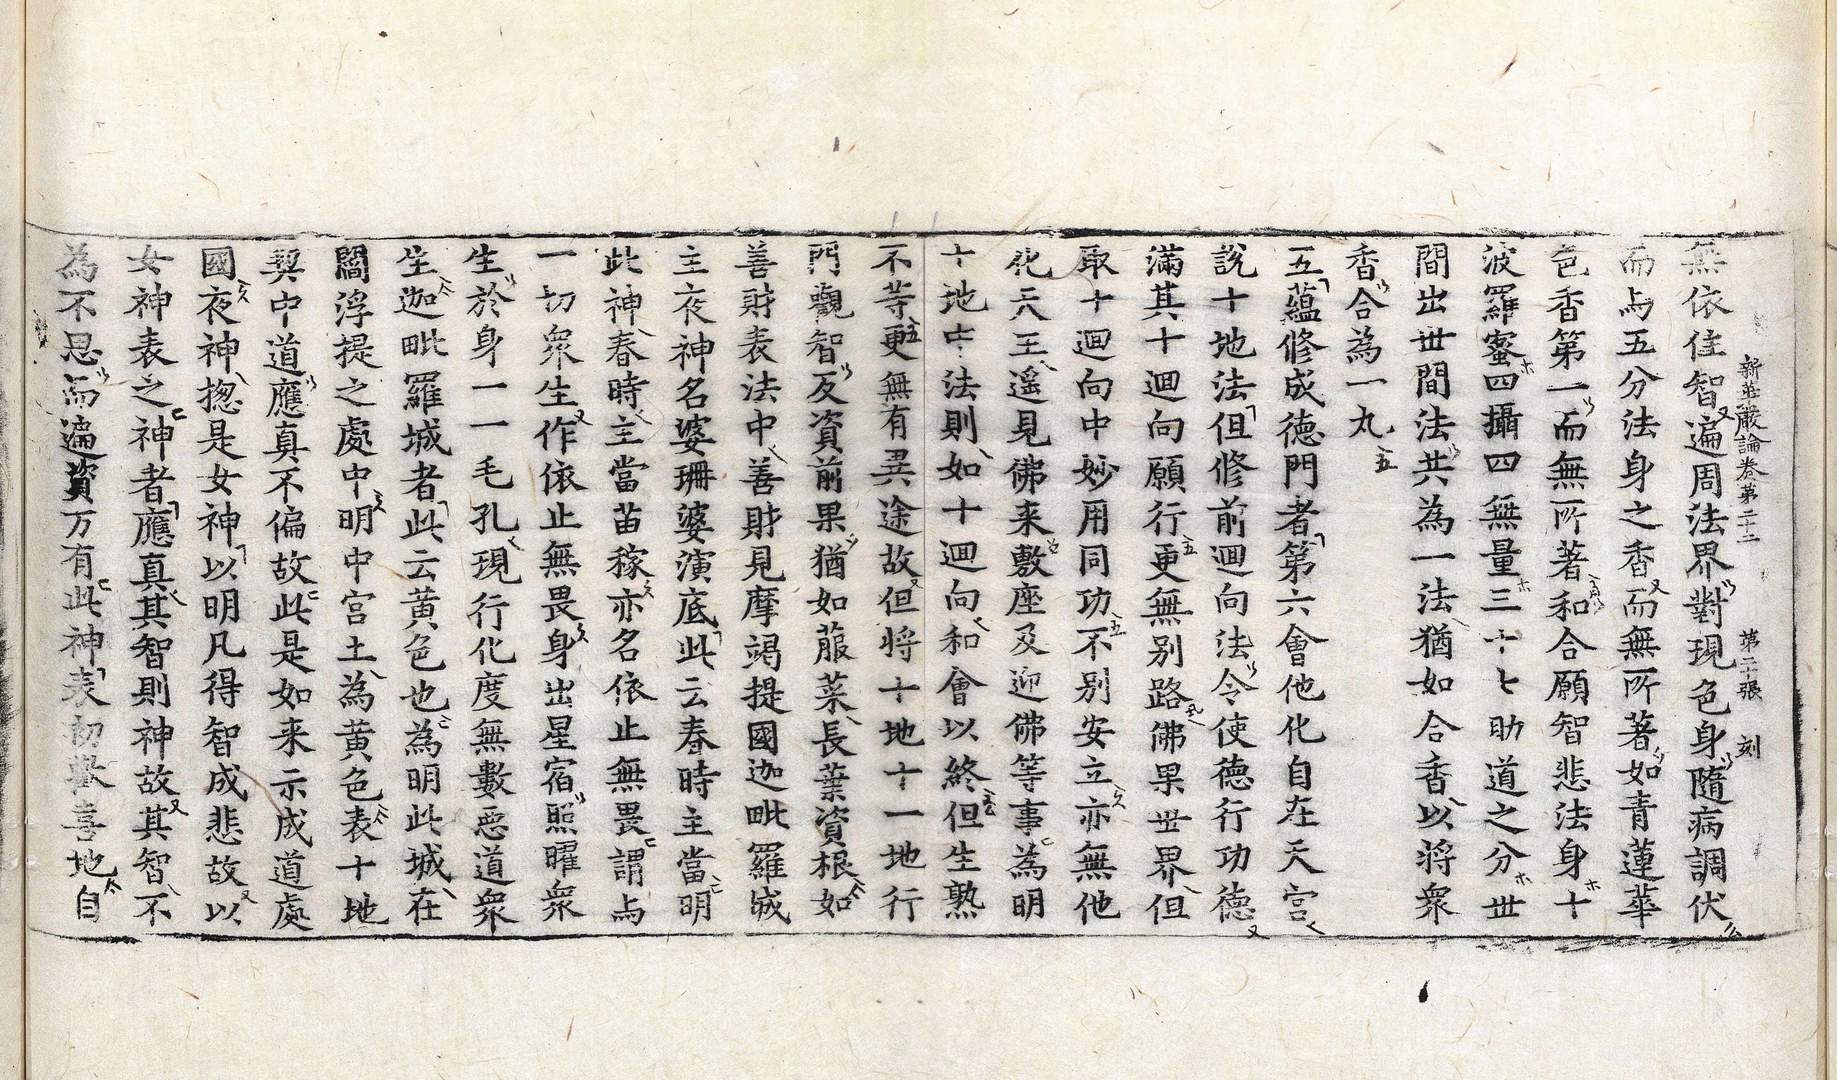 新華嚴論卷第二十三 第二十張 刻
無依住智遍周法界對現色身隨病調伏
而与五分法身之香而無所著如青蓮華
色香第一而無所著和合願智悲法身十
波羅蜜四攝四無量三十七助道之分世
間出世間法共為一法猶如合香以將衆
香合為一丸
五蘊修成德門者第六會他化自在天宮
說十地法但修前迴向法令使德行功德
滿其十迴向願行更無别路佛果世界但
取十迴向中妙用同功不別安立亦無他
化天王遥見佛来敷座及迎佛等事為明
十地中法則如十迴向和會以終但生熟
不等更無有異途故但将十地十一地行
門觀智反資前果猶如菔菜長葉資根如
善財表法中善財見摩竭提國迦毗羅城
主夜神名婆珊婆演底此云春時主當明
此神春時主當苗稼亦名依止無畏謂与
一切衆生作依止無畏身出星宿照曜衆
生於身一一毛孔現行化度無數惡道衆
生迦毗羅城者此云黄色也為明此城在
閻浮提之處中明中宮土為黄色表十地
契中道應真不偏故此是如来示成道處
國夜神揔是女神以明凡得智成悲故以
女神表之神者應真其智則神故其智不
為不思而遍資万有此神表初歡喜地自